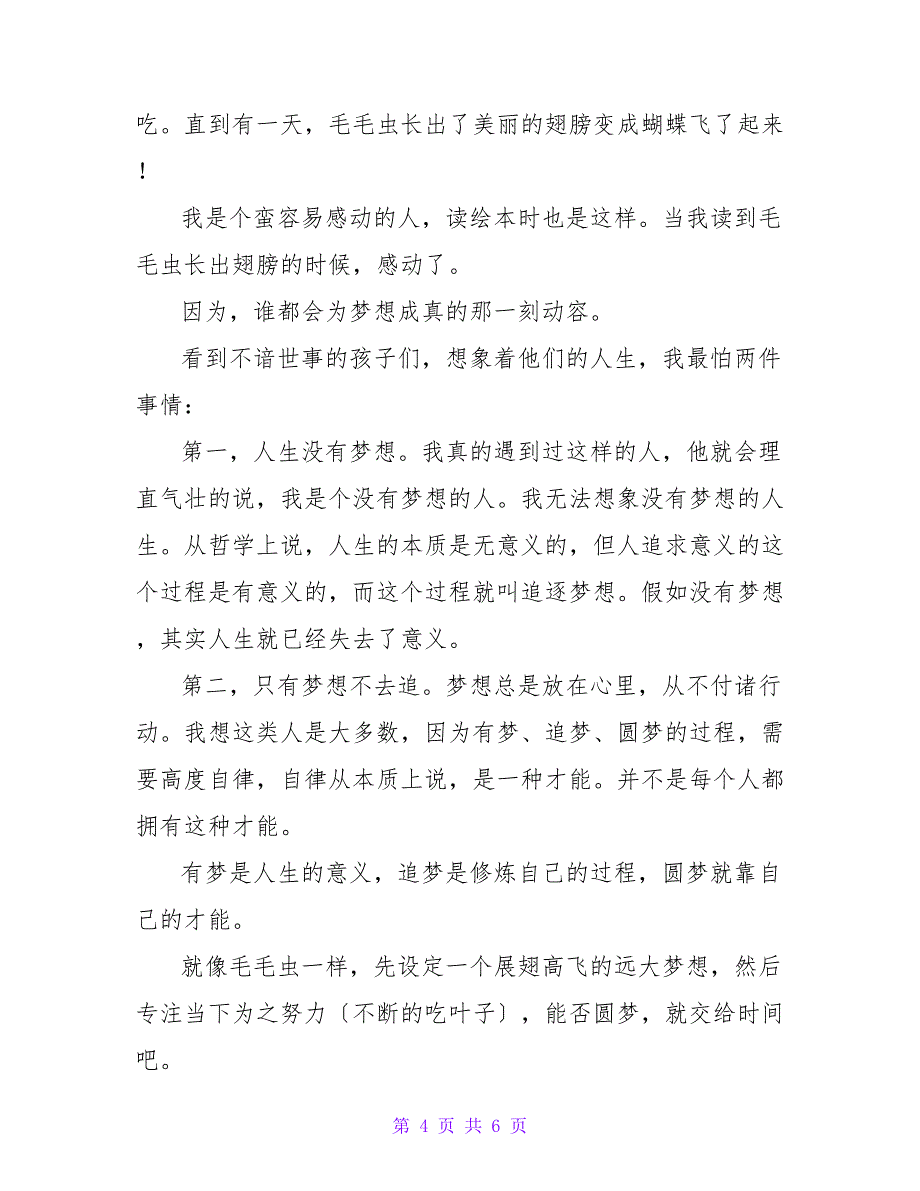 吃。直到有一天，毛毛虫长出了美丽的翅膀变成蝴蝶飞了起来
！
我是个蛮容易感动的人，读绘本时也是这样。当我读到毛
毛虫长出翅膀的时候，感动了。
因为，谁都会为梦想成真的那一刻动容。
看到不谙世事的孩子们，想象着他们的人生，我最怕两件
事情：
第一，人生没有梦想。我真的遇到过这样的人，他就会理
直气壮的说，我是个没有梦想的人。我无法想象没有梦想的人
生。从哲学上说，人生的本质是无意义的，但人追求意义的这
个过程是有意义的，而这个过程就叫追逐梦想。假如没有梦想
，其实人生就已经失去了意义。
第二，只有梦想不去追。梦想总是放在心里，从不付诸行
动。我想这类人是大多数，因为有梦、追梦、圆梦的过程，需
要高度自律，自律从本质上说，是一种才能。并不是每个人都
拥有这种才能。
有梦是人生的意义，追梦是修炼自己的过程，圆梦就靠自
己的才能。
就像毛毛虫一样，先设定一个展翅高飞的远大梦想，然后
专注当下为之努力〔不断的吃叶子〕，能否圆梦，就交给时间
吧。
第 4 页 共 6 页